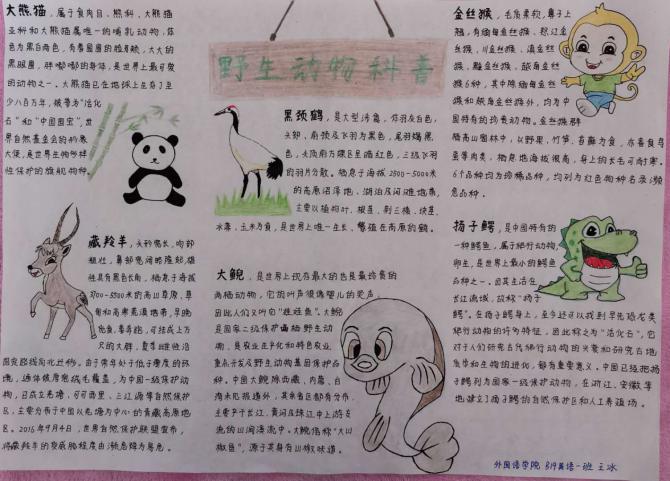 野生动物科普
大熊猫，属于食肉目、熊科、大熊猫
亚科和大熊猫属唯一的哺乳动物，体
色为黑白两色，有着圆圆的脸颊，大大的
黑眼圈，胖嘟嘟的身体，是世界上最可爱
的动物之一。大熊猫已在地球上生存了至
少八百万年，被誉为“活化
石”和“中国国宝”，世
界自然基金会的形象
大使，是世界生物多样
性保护的旗舰物种。
藏羚羊，头形宽长，吻部
粗壮，鼻部宽阔略隆起，雄
性具有黑色长角，栖息于海拔
3700-5500米的高山草原、草
甸和高寒荒漠地带，早晚
觅食，善奔跑，可结成上万
只的大群，夏季雌性沿
固定路线向北迁移。由于常年处于低于零度的环
境，通体被厚密绒毛覆盖，为中国一级保护动
物，已成立羌塘、可可西里、三江源等自然保护
区。主要分布于中国以羌塘为中心的青藏高原地
区。2016年9月4日，世界自然保护联盟宣布，
将藏羚羊的受威胁程度由濒危降为易危。
黑颈鹤，是大型涉禽，体羽灰白色，
头部、前颈及飞羽为黑色，尾羽褐黑
色，头顶前方裸区呈暗红色，三级飞羽
的羽片分散。栖息于海拔2500-5000米
的高原沼泽地、湖泊及河滩地带，
主要以植物叶、根茎、荆三棱、块茎、
水藻、玉米为食，是世界上唯一生长、繁殖在高原的鹤。
大鲵，是世界上现存最大的也是最珍贵的
两栖动物，它的叫声很像婴儿的哭声，
因此人们又叫它“娃娃鱼”。大鲵
是国家二级保护野生动
物，是农业产业化和特色农业
重点开发及野生动物基因保护品
种。中国大鲵除西藏、内蒙、台
湾未见报道外，其余省区都有分布，
主要产于长江、黄河及珠江中上游支
流的山涧溪流中。大鲵俗称“大山
椒鱼”，源于其身有山椒味道。
金丝猴，毛质柔软，鼻子上
翘，有缅甸金丝猴、怒江金
丝猴、川金丝猴、滇金丝
猴、黔金丝猴、越南金丝
猴6种，其中除缅甸金丝
猴和越南金丝猴外，均为中
国特有的珍贵动物。金丝猴群
栖高山密林中，以野果、竹笋、苔藓为食，亦喜食鸟
蛋等肉类，栖息地海拔很高，身上的长毛可耐寒。
6个品种均为珍稀品种，均列为红色物种名录濒
危品种。
扬子鳄，是中国特有的
一种鳄鱼，属于爬行动物，
卵生，是世界上最小的鳄鱼
品种之一。因其生活在
长江流域，故称“扬子
鳄”。在扬子鳄身上，至今还可以找到早先恐龙类
爬行动物的许多特征，因此称之为“活化石”，它
对于人们研究古代爬行动物的兴衰和研究古地
质学和生物的进化，都有重要意义。中国已经把扬
子鳄列为国家一级保护动物，在浙江、安徽等
地建立了扬子鳄的自然保护区和人工养殖场。
外国语学院 B19英语一班 王冰